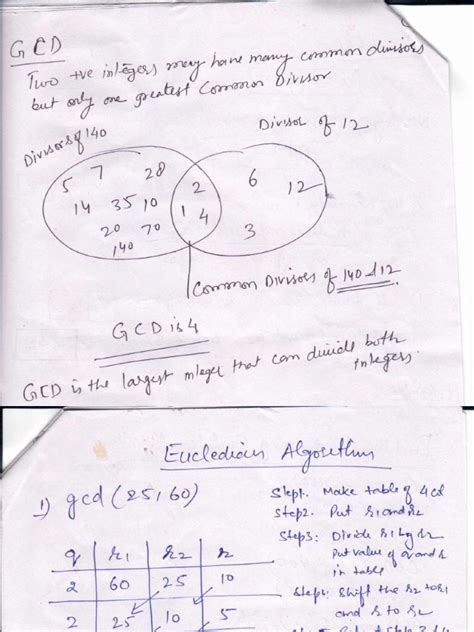 GCD
Two +ve integers may have many common divisors
but only one greatest Common Divisor
Divisors of 140
Divisor of 12
5 7 28
14 35 10
20 70
140
2
1 4
6
12
3
Common Divisors of 140 & 12.
GCD is 4
GCD is the largest integer that can divide both
integers.
Eucledian Algorithm
1) gcd (25, 60)
Step1. Make table of 4 col
Step2. Put r1 and r2
Step3: Divide r1 by r2
Put value of q and r
in table
Step4. Shift the r2 to r1
and r to r2
q r1 r2 r
2 60 25 10
2 25 10 5